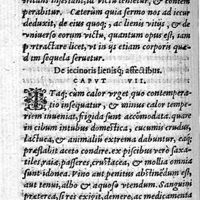 turum infestum, ita victu tenetur, & contem
perabitur. Cæterùm quia sermo nos ad iecur
deduxit, de eius quoq; ac lienis vitijs, & de v
niuerso eorum victu, quantum opus est, iam
pertractare licet, vt in ijs etiam corporis quæ
dam sequela seruetur.
De iecinoris lienisq; affectibus.
CAPVT VII.
ITaq; cum calor vrget quo contempera
tio insequatur, & minus calor temper
iem inueniat, frigida sunt accomodata. quare
in cibum intubus domestica, cucumis crudus,
lactuca, & animalium extrema dabuntur
præsalit aceto condire. ex piscibus verò sax
tiles raia, passeres, crustacea, & mollia omnia
sunt idonea. Vino aut penitus abstinēdum est,
aut tenui, albo & aquoso vtendum. Sanguini
præterea, si res exigit, demere, ac medicamēta